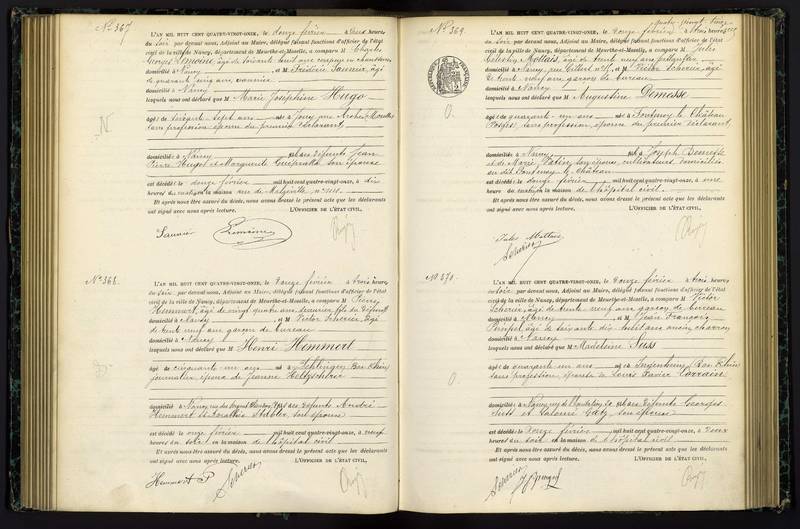 N° 367
L'AN MIL HUIT CENT QUATRE-VINGT-ONZE, le douze février à deux heures
du soir par devant nous, Adjoint au Maire, délégué faisant fonctions d'officier de l'état
civil de la ville de Nancy, département de Meurthe-et-Moselle, a comparu M Charles
Georges Lemoine âgé de soixante huit ans
domicilié à Nancy, et M Frédéric Saunier, âgé
de quarante cinq ans, vannier
domicilié à Nancy
lesquels nous ont déclaré que M Marie Joséphine Hugo
âgée de soixante sept ans née à Jouy aux Arches Moselle
sans profession épouse du premier déclarant
domiciliée à Nancy fille des défunts Jean
Pierre Hugo et Marguerite son épouse
est décédée le douze février mil huit cent quatre-vingt-onze, à dix
heures du matin en sa maison rue de Malzéville, n°
Et après nous être assuré du décès, nous avons dressé le présent acte que les déclarants
ont signé avec nous après lecture. L'OFFICIER DE L'ÉTAT CIVIL,
Saunier Lemoine
N° 368.
L'AN MIL HUIT CENT QUATRE-VINGT-ONZE, le douze février à trois heures
du soir par devant nous, Adjoint au Maire, délégué faisant fonctions d'officier de l'état
civil de la ville de Nancy, département de Meurthe-et-Moselle, a comparu M Pierre
Hemmert, âgé de vingt quatre ans, fils du défunt
domicilié à Nancy, et M Victor Scherier, âgé
de trente neuf ans garçon de bureau
domicilié à Nancy
lesquels nous ont déclaré que M Henri Hemmert
âgé de cinquante un ans né à Bas Rhin
journalier époux de Jeanne
domicilié à Nancy fils des défunts André
Hemmert et Dorothée son épouse
est décédé le onze février mil huit cent quatre-vingt-onze, à neuf
heures du soir en la maison de l'hôpital civil
Et après nous être assuré du décès, nous avons dressé le présent acte que les déclarants
ont signé avec nous après lecture. L'OFFICIER DE L'ÉTAT CIVIL,
Hemmert P Scherier
quatre-vingt-onze
N° 369.
L'AN MIL HUIT CENT QUATRE-VINGT-ONZE, le douze février à trois heures
du soir par devant nous, Adjoint au Maire, délégué faisant fonctions d'officier de l'état
civil de la ville de Nancy, département de Meurthe-et-Moselle, a comparu M Jules
Célestin Mottais, âgé de trente neuf ans
domicilié à Nancy, rue Gilbert et M Victor Scherier, âgé
de trente neuf ans garçon de bureau
domicilié à Nancy
lesquels nous ont déclaré que M Augustine Demesse
âgée de quarante un ans née à Fontenoy le Château
Vosges, sans profession, épouse du premier déclarant
domiciliée à Nancy fille de Joseph Demesse
et de Marie son épouse, cultivateurs, domiciliés
au dit Fontenoy le Château
est décédée le douze février mil huit cent quatre-vingt-onze, à une
heure du matin en la maison de l'hôpital civil.
Et après nous être assuré du décès, nous avons dressé le présent acte que les déclarants
ont signé avec nous après lecture. L'OFFICIER DE L'ÉTAT CIVIL,
Jules Mottais
Scherier
N° 370.
L'AN MIL HUIT CENT QUATRE-VINGT-ONZE, le douze février à trois heures
du soir par devant nous, Adjoint au Maire, délégué faisant fonctions d'officier de l'état
civil de la ville de Nancy, département de Meurthe-et-Moselle, a comparu M Victor
Scherier, âgé de trente neuf ans garçon de bureau
domicilié à Nancy, et M Jean François
âgé de soixante dix huit ans ancien charron
domicilié à Nancy
lesquels nous ont déclaré que M Madeleine Suss
âgée de quarante un ans née à Bas Rhin
sans profession, épouse de Louis Xavier Lorrain
domiciliée à Nancy, fille des défunts Georges
Suss et Salomé son épouse
est décédée le douze février mil huit cent quatre-vingt-onze, à deux
heures du soir en la maison de l'hôpital civil
Et après nous être assuré du décès, nous avons dressé le présent acte que les déclarants
ont signé avec nous après lecture. L'OFFICIER DE L'ÉTAT CIVIL,
Scherier